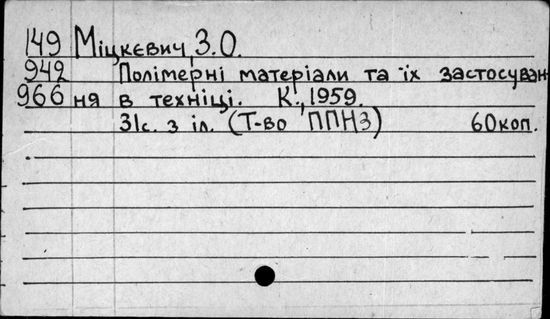 149 Міцкевич, З.О.
942 Полімерні матеріали та їх застосуван
966 ня в техніці. К., 1959.
31с. з іл. (Т-во ППНЗ) 60коп.